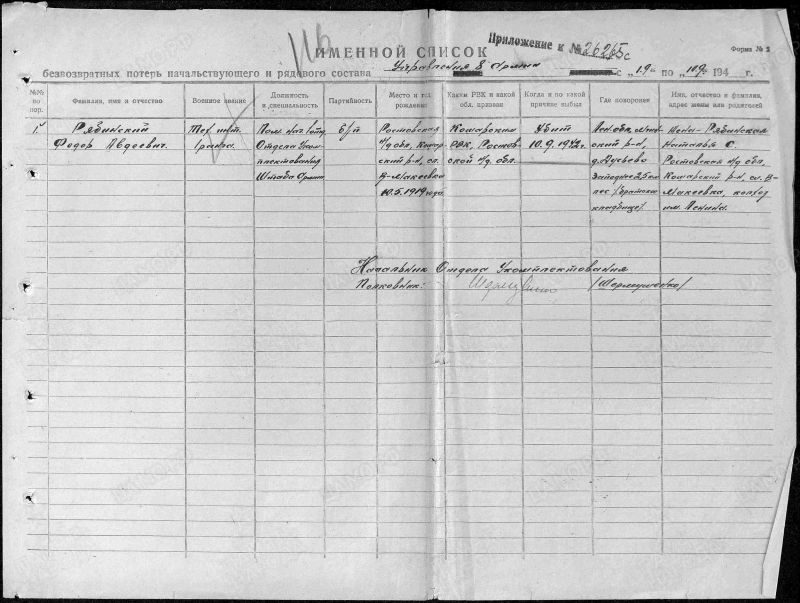 Приложение к № 26265с
Форма № 2
ИМЕННОЙ СПИСОК
безвозвратных потерь начальствующего и рядового состава Управления 8 Армии с „1.9" по „10.9" 194 г.
№№ по пор.
Фамилия, имя и отчество
Военное звание
Должность и специальность
Партийность
Место и год рождения
Каким РВК и какой обл. призван
Когда и по какой причине выбыл
Где похоронен
Имя, отчество и фамилия, адрес жены или родителей
1
Рябинский
Федор Авдеевич.
Тех. инт.
1 ранга.
Пом. нач. 1 отд.
Отдела Уком-
плектования
Штаба Армии.
б/п
Ростовская
н/д обл., Кошар-
ский р-н, сл.
В-Макеевка
10.5.1919 года.
Кошарским
РВК, Ростов-
ской н/д. обл.
Убит
10.9.1942г.
Лен. обл., Мгин-
ский р-н,
д. Дусьево
западнее 2,5 км
лес /братское
кладбище/.
Жена - Рябинская
Наталья С.
Ростовская н/д обл,
Кошарский р-н, сл. В-
Макеевка, колхоз
им. Ленина.
Начальник Отдела Укомплектования
Полковник: